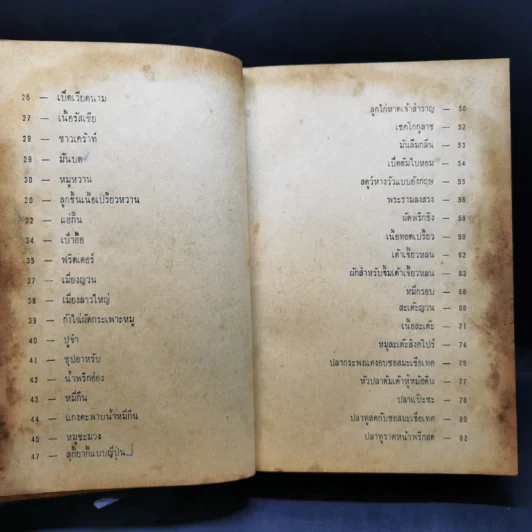 26 — เป็ดเวียดนาม
27 — เนื้อรัสเซีย
28 — ซาวเคร้าท์
29 — มันบด
30 — หมูหวาน
30 — ลูกชิ้นเนื้อเปรี้ยวหวาน
32 — แฮ่กึ๊น
34 — เปาะเปี๊ยะ
35 — ฟริตเตอร์
37 — เมี่ยงญวน
38 — เมี่ยงลาวใหญ่
39 — กังไฉ่ผัดกระเพาะหมู
40 — ปูจ๋า
41 — ซุปอาหรับ
42 — น้ำพริกอ่อง
43 — หมี่กึน
44 — แกงตะพาบน้ำหมี่กึน
45 — หมูชะมวง
47 — สุกี้ยากี้แบบญี่ปุ่น
ลูกไก่หาดเจ้าสำราญ — 50
เชคโกกูลาช — 52
มันลืมกลืน — 53
เป็ดต้มใบหอม — 54
สตูว์หางวัวแบบอังกฤษ — 55
พระรามลงสรง — 56
ผัดพริกขิง — 58
เนื้อทอดเปรี้ยว — 59
เต้าเจี้ยวหลน — 62
ผักสำหรับจิ้มเต้าเจี้ยวหลน — 63
หมี่กรอบ — 66
สะเต๊ะญวน — 68
เนื้อสะเต๊ะ — 71
หมูสะเต๊ะสิงคโปร์ — 74
ปลากระพงแดงอบซอสมะเขือเทศ — 75
หัวปลาต้มเต้าหู้หม้อดิน — 77
ปลาแป๊ะซะ — 78
ปลาทูสดกับซอสมะเขือเทศ — 80
ปลาทูราดหน้าพริกสด — 82